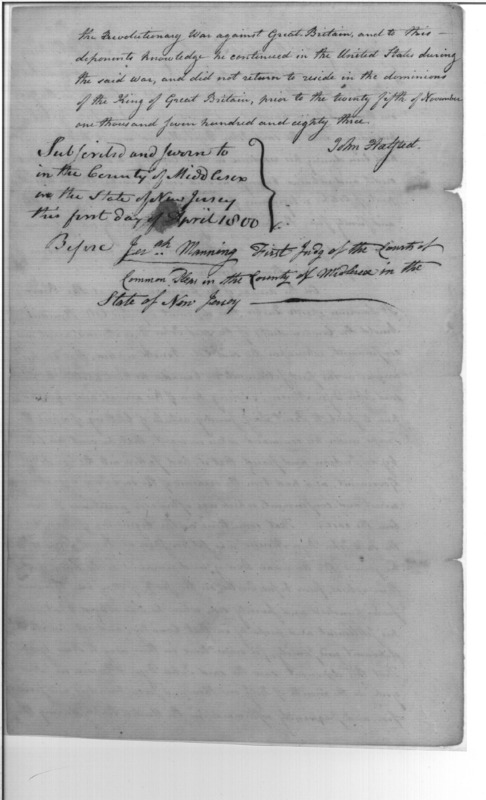 the Revolutionary War against Great Britain, and to this
deponents knowledge he continued in the United States during
the said war, and did not return to reside in the dominions
of the King of Great Britain, prior to the twenty fifth of November
one thousand seven hundred and eighty three.
John Halsted.
Subscribed and sworn to
in the County of Middlesex
in the State of New Jersey
this first day of April 1800
Before Jer ah Manning First Judg of the Courts of
Common Pleas in the County of Midlesex in the
State of New Jersey